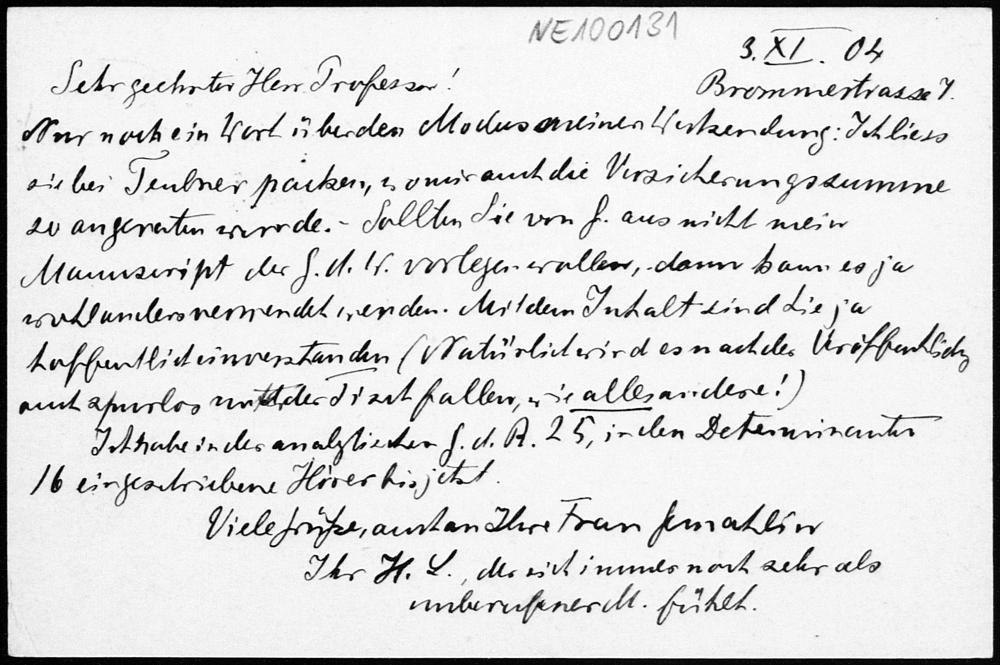 NE100131
3. XI. 04
Sehr geehrter Herr Professor!
Brommerstrasse 7.
Nur noch ein Wort über den Modus meiner Wertsendung: Ich liess
sie bei Teubner packen, wo mir auch die Versicherungssumme
so angeraten wurde. – Sollten Sie von G. aus nicht mein
Manuscript der G. d. W. vorlegen wollen, dann kann es ja
wohl anders verwendet werden. Mit dem Inhalt sind Sie ja
hoffentlich einverstanden (Natürlich wird es nach der Veröffentlichg
auch spurlos unter den Tisch fallen, wie alles andere!)
Ich habe in der analytischen G. d. R. 25, in den Determinanten
16 eingeschriebene Hörer bis jetzt.
Viele Grüße, auch an Ihre Frau Gemahlin
Ihr H. L., der sich immer noch sehr als
unberufener M. fühlt.